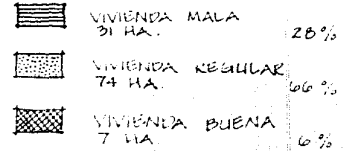 VIVIENDA MALA
31 HA. 28%
VIVIENDA REGULAR
74 HA. 66%
VIVIENDA BUENA
7 HA 6%